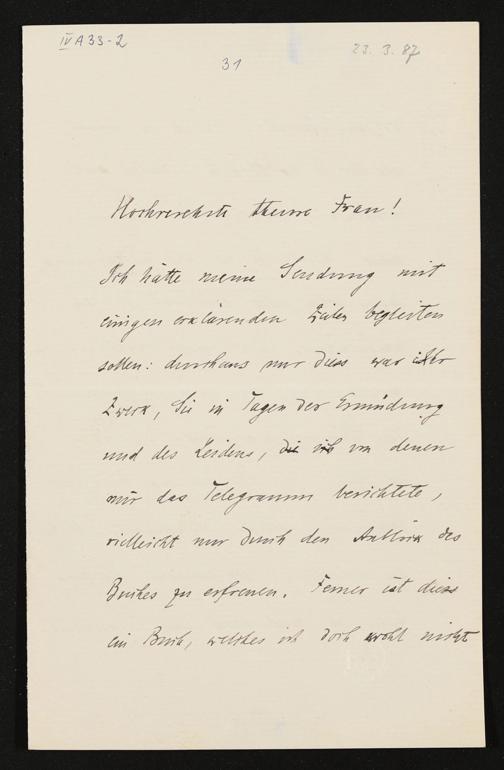 IV A 33-2
31
23. 3. 87
Hochverehrte theure Frau!
Ich hätte meine Sendung mit
einigen erklärenden Zeilen begleiten
sollen: durchaus nur diess war ihr
Zweck, Sie in Tagen der Ermüdung
und des Leidens, die ich von denen
mir das Telegramm berichtete,
vielleicht nur durch den Anblick des
Buches zu erfreuen. Ferner ist diess
ein Buch, welches ich doch wohl nicht